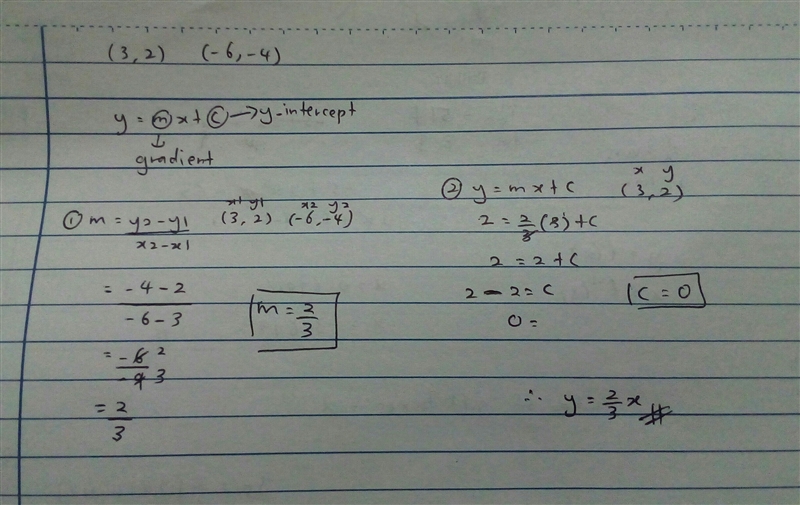 (3,2) (-6,-4)
y = mx + c → y-intercept
↓
gradient
① m = y2-y1 / x2-x1
x1 y1 x2 y2
(3,2) (-6,-4)
= -4-2 / -6-3
= -6 / -9 2 3
= 2/3
m = 2/3
② y = mx + c
x y
(3,2)
2 = 2/3 (3) + c
2 = 2 + c
2 - 2 = c
0 =
c = 0
∴ y = 2/3 x